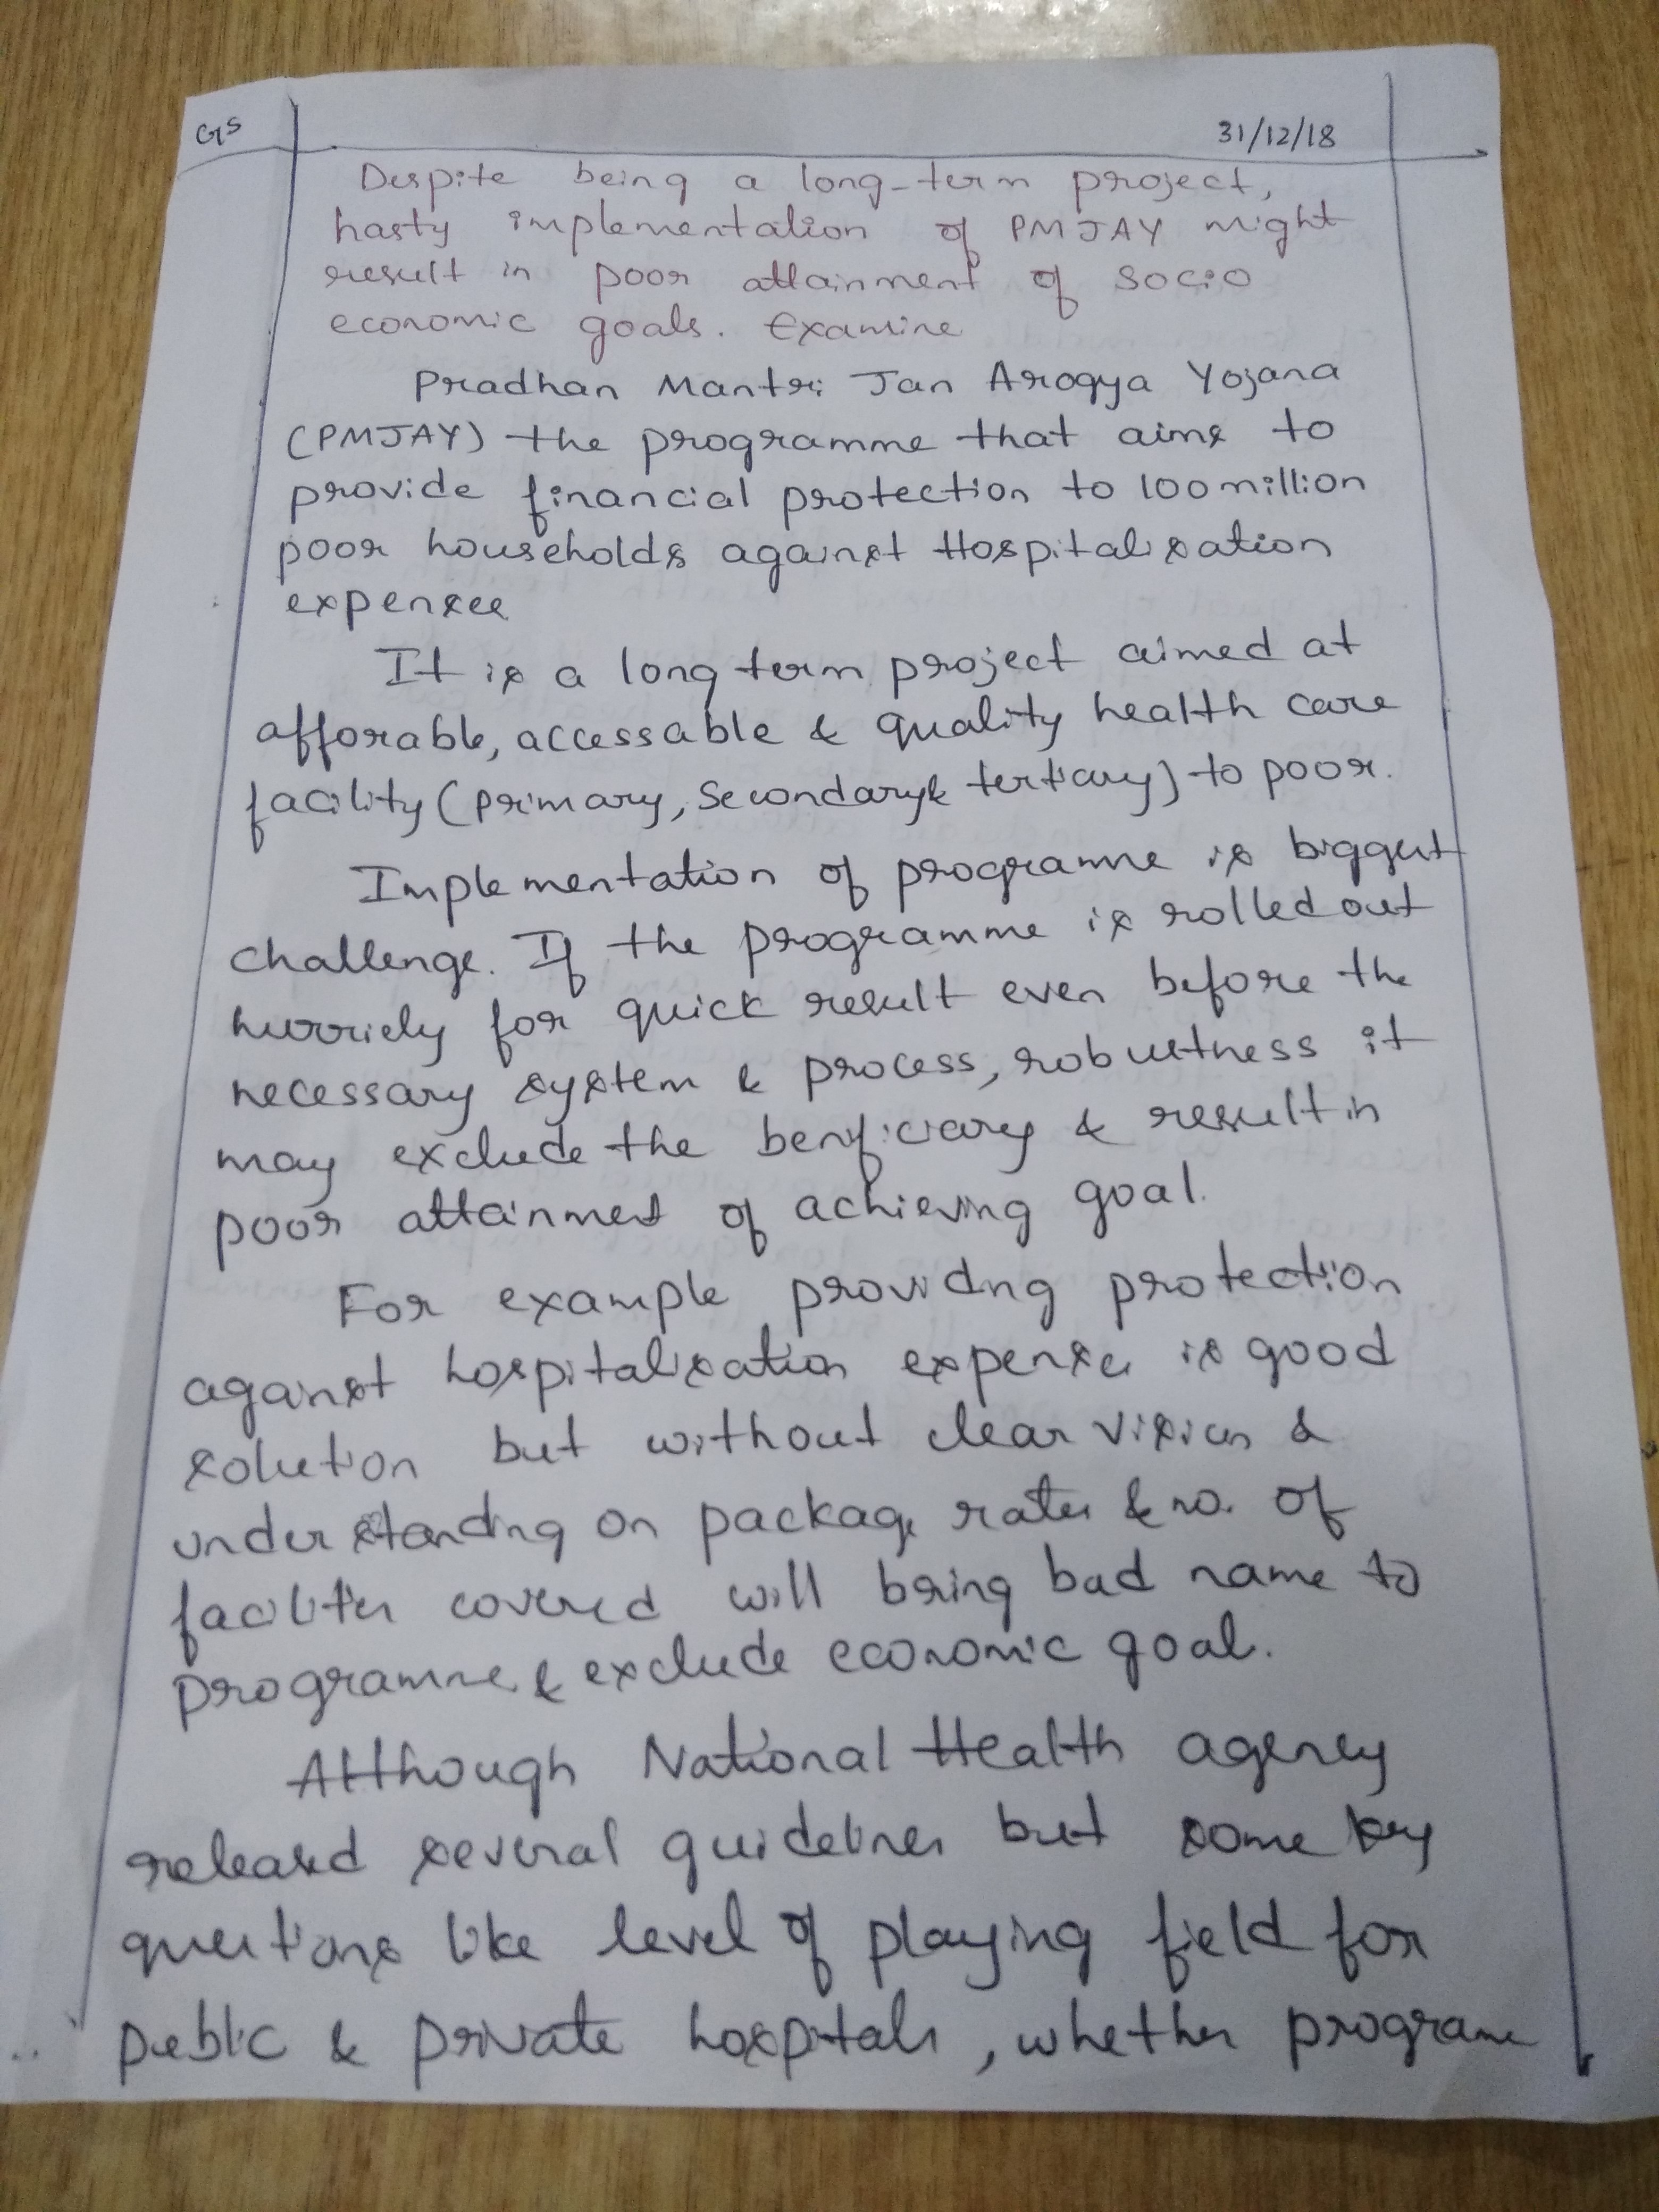 GS
31/12/18
Despite being a long-term project,
hasty implementation of PMJAY might
result in poor attainment of socio
economic goals. Examine
Pradhan Mantri Jan Arogya Yojana
(PMJAY) the programme that aims to
provide financial protection to 100 million
poor households against Hospitalisation
expenses
It is a long term project aimed at
afforable, accessable & quality health care
facility (primary, Secondary & tertiary) to poor.
Implementation of programme is biggest
challenge. If the programme is rolled out
hurriely for quick result even before the
necessary system & process, robustness it
may exclude the benficiary & result in
poor attainment of achieving goal.
For example providing protection
against hospitalisation expenses is good
solution but without clear vision &
understanding on package rates & no. of
facilities covered will bring bad name to
programme & exclude economic goal.
Although National Health agency
released several guidelines but some key
questions like level of playing field for
public & private hospitals, whether programe